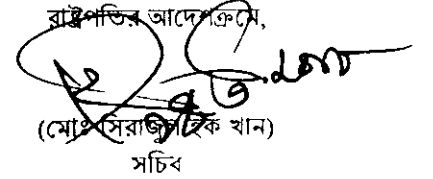 রাষ্ট্রপতির আদেশক্রমে,
(মোঃ সিরাজুল হক খান)
সচিব